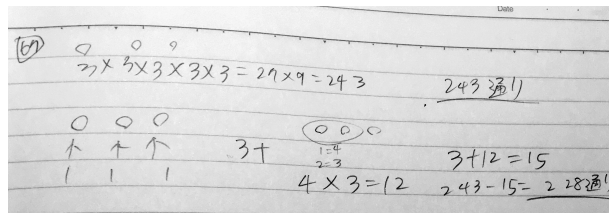 Date
67
○ ○ ○
3×3×3×3×3=27×9=243
243通り
○ ○ ○
↑ ↑ ↑
1 1 1
3+
○ ○ ○
1=4
2=3
4×3=12
3+12=15
243-15=228通り